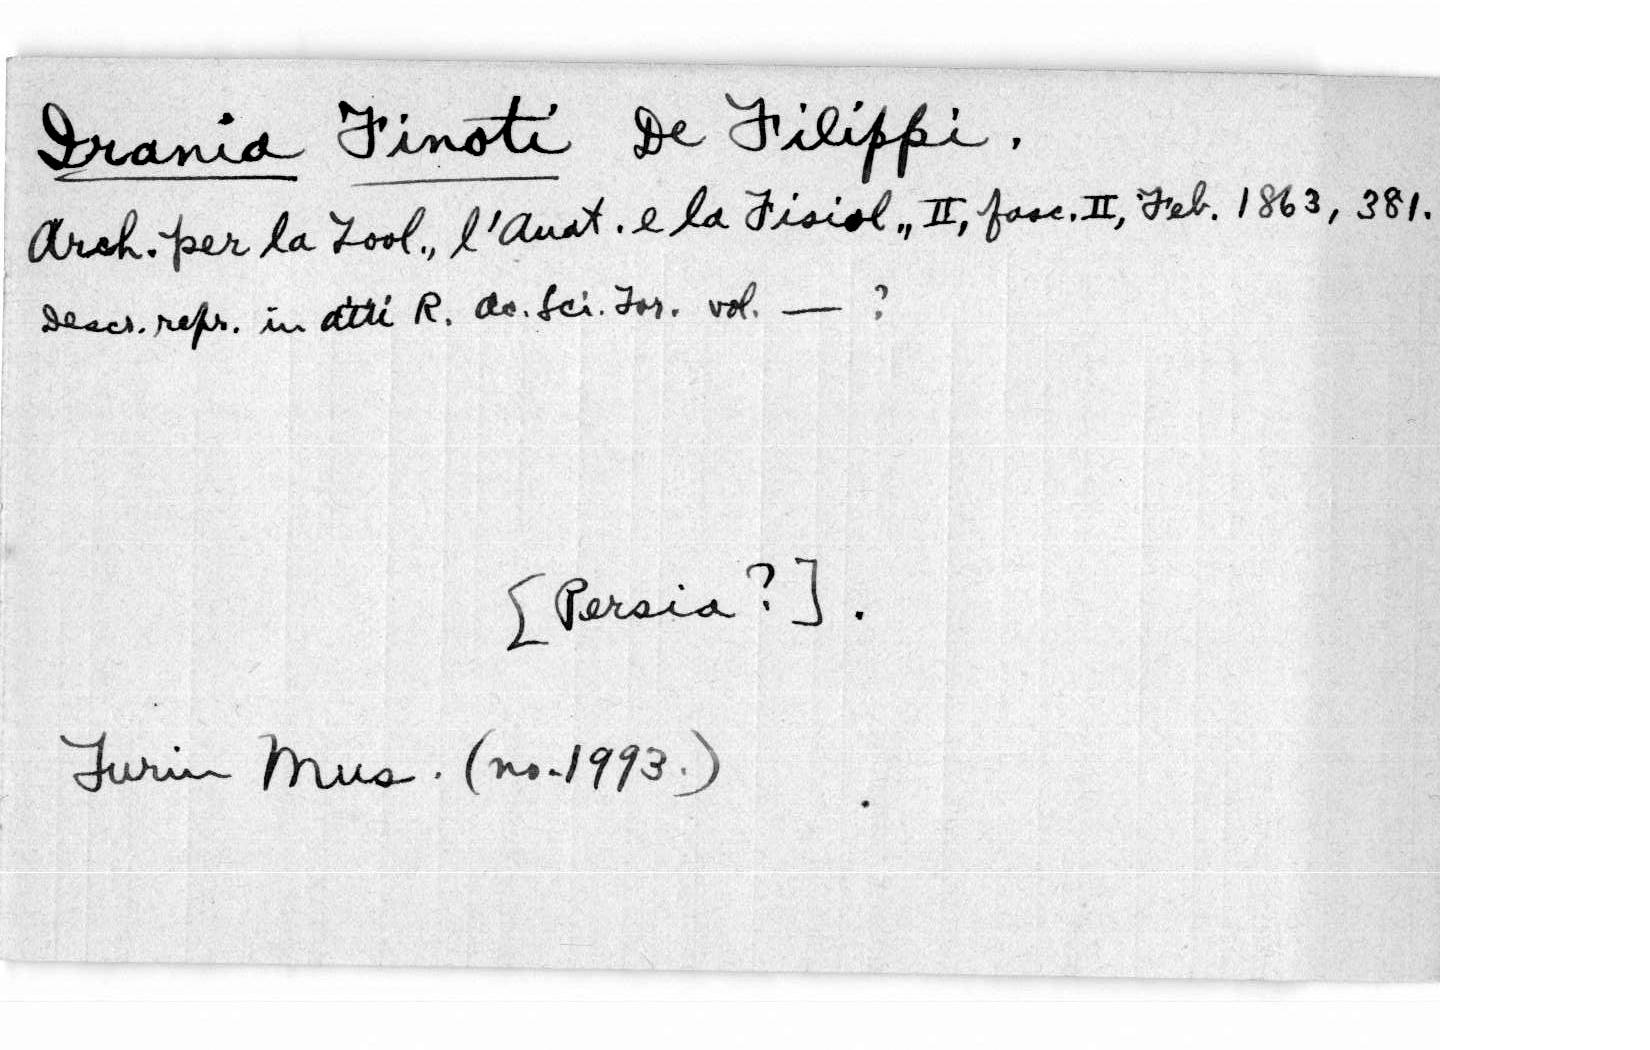 Irania Finoti De Filippi.
Arch. per la Zool., l'Anat. e la Fisiol., II, fasc. II, Feb. 1863, 381.
Descr. repr. in Atti R. Ac. Sci. Tor. vol. — ?
[Persia?].
Turin Mus. (no. 1993.)